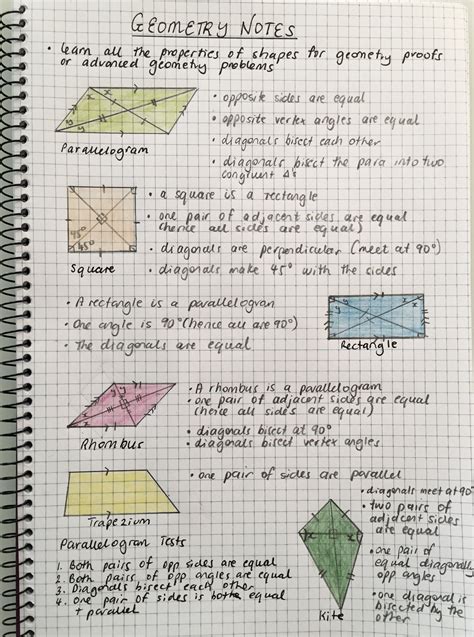 GEOMETRY NOTES
• learn all the properties of shapes for geometry proofs
or advanced geometry problems
Parallelogram
• opposite sides are equal
• opposite vertex angles are equal
• diagonals bisect each other
• diagonals bisect the para into two
congruent Δ's
45°
45°
Square
• a square is a rectangle
• one pair of adjacent sides are equal
(hence all sides are equal)
• diagonals are perpendicular (meet at 90°)
• diagonals make 45° with the sides
• A rectangle is a parallelogram
• One angle is 90° (hence all are 90°)
• The diagonals are equal
Rectangle
Rhombus
• A rhombus is a parallelogram
• one pair of adjacent sides are equal
(hence all sides are equal)
• diagonals bisect at 90°
• diagonals bisect vertex angles
Trapezium
• one pair of sides are parallel
Kite
• diagonals meet at 90°
• two pairs of
adjacent sides
are equal
• one pair of
equal diagonally
opp angles
• one diagonal is
bisected by the
other
Parallelogram Tests
1. Both pairs of opp. sides are equal
2. Both pairs of opp. angles are equal
3. Diagonals bisect each other
4. One pair of sides is both equal
+ parallel